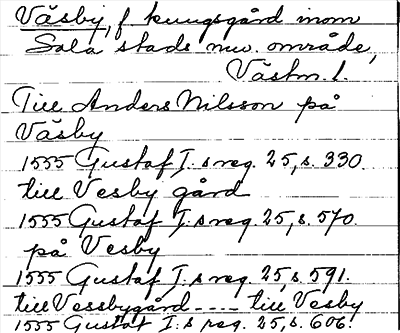 Väsby, f kungsgård inom
Sala stads nuv. område,
Västm. l.
Till Anders Nilsson på
Väsby
1555 Gustaf I.s reg. 25, s. 330.
till Vesby gård
1555 Gustaf I.s reg. 25, s. 570.
på Vesby
1555 Gustaf I.s reg. 25, s. 591.
till Vessbygård ---- till Vesby
1555 Gustaf I.s reg. 25, s. 606.